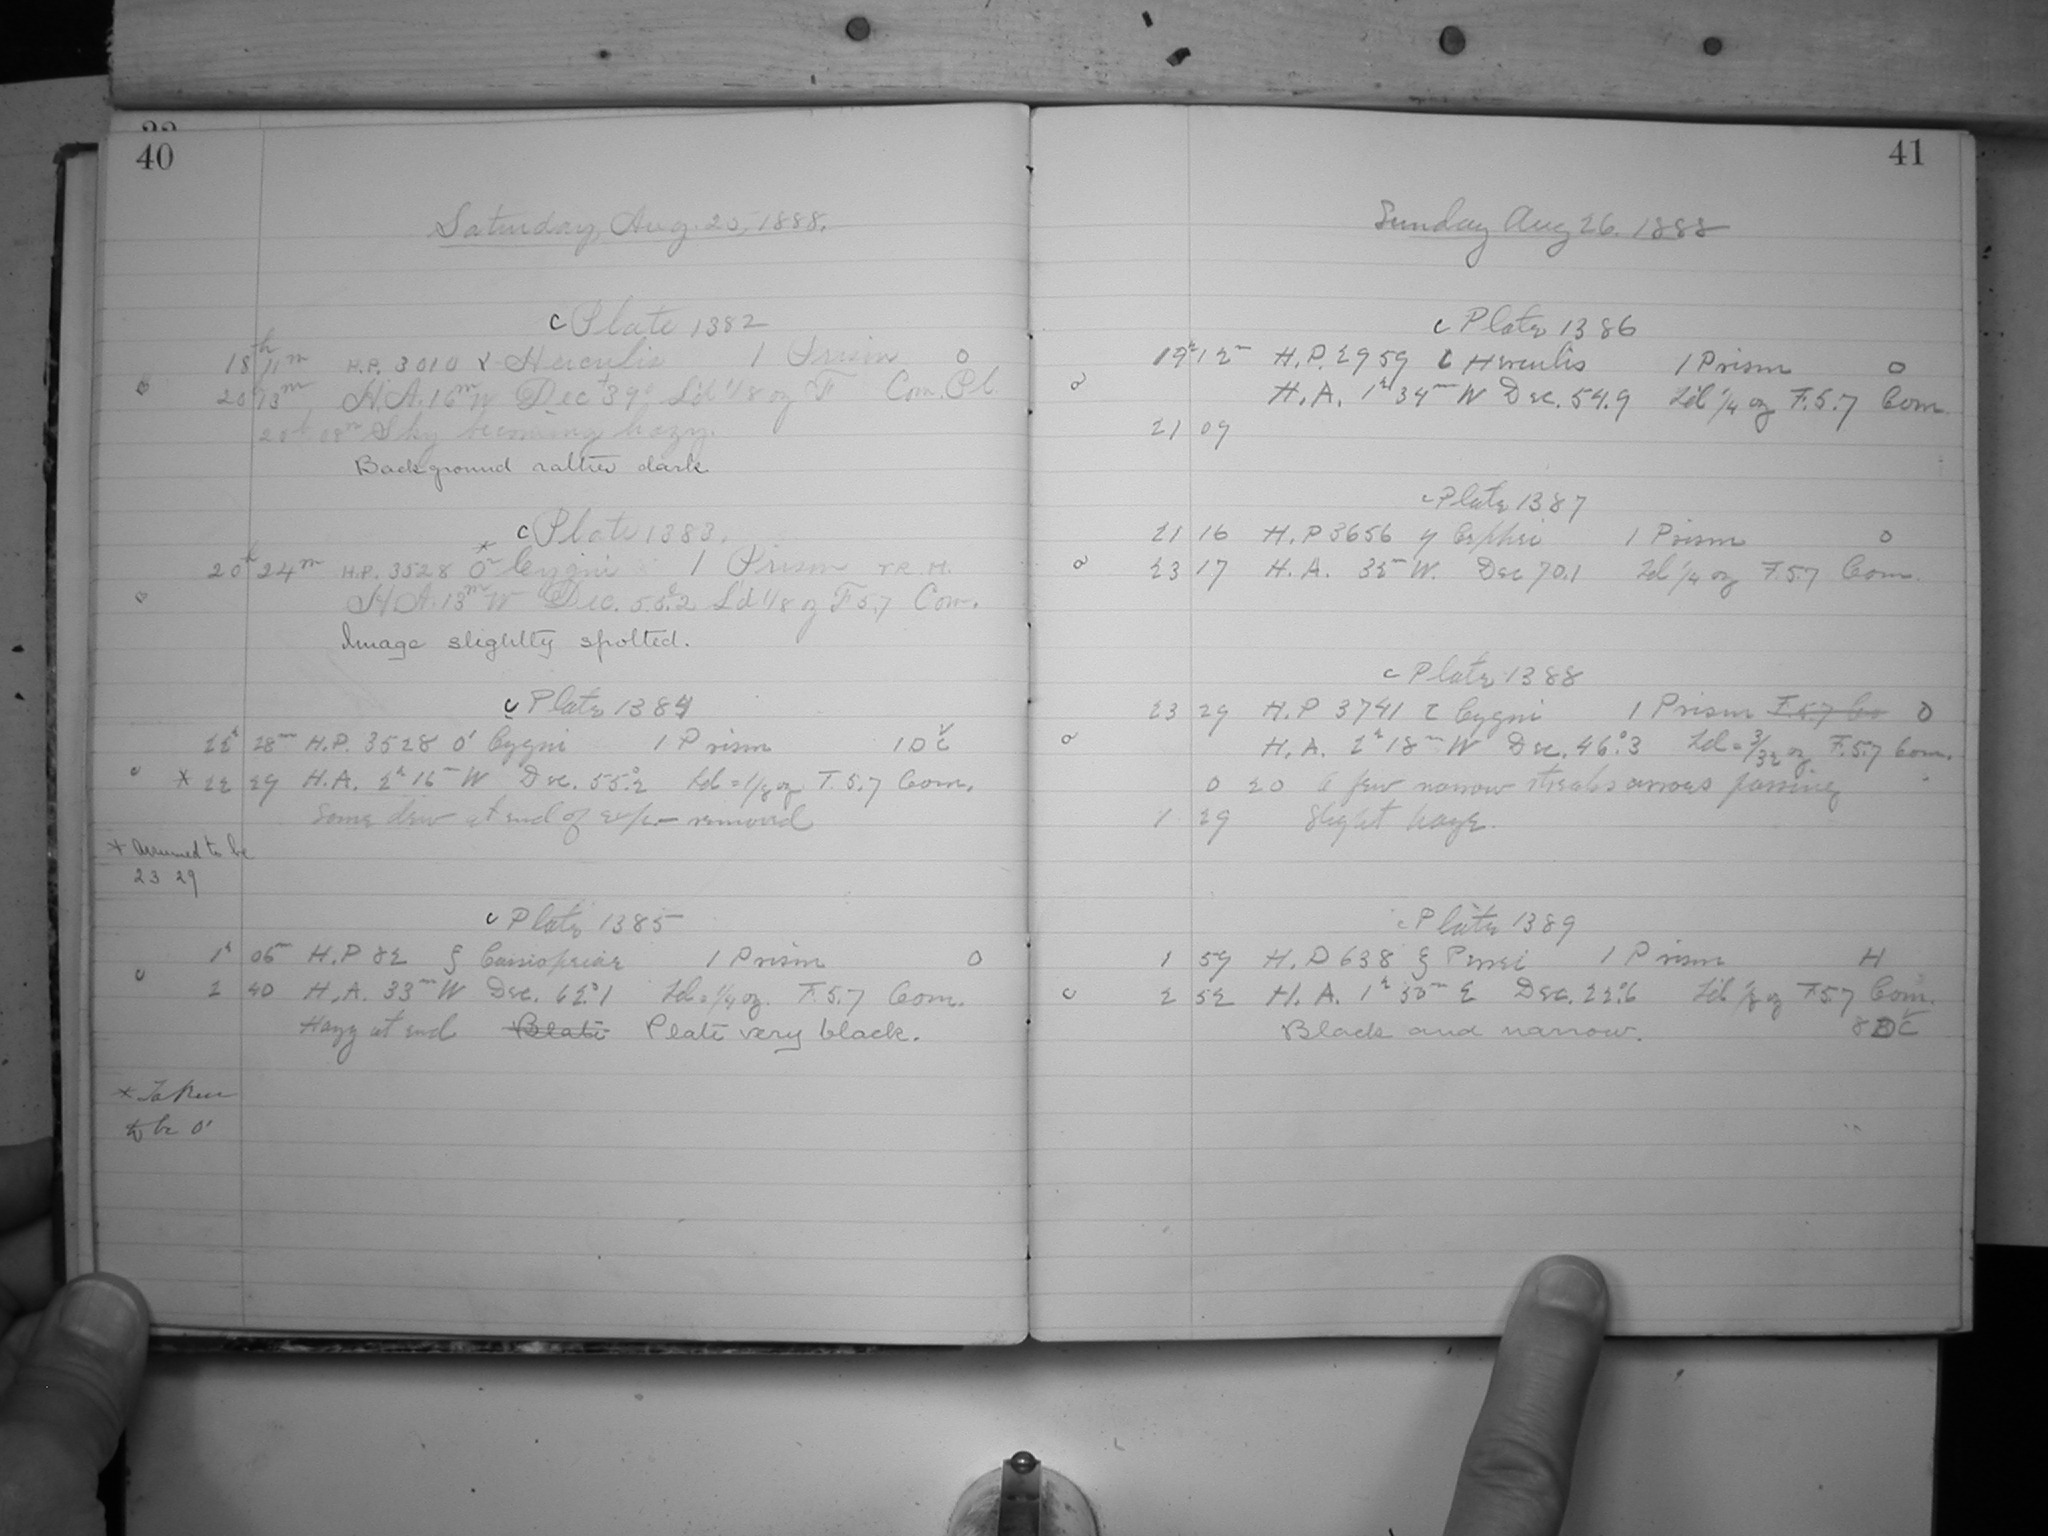 40
Saturday, Aug. 25, 1888.
c Plate 1382
18h 11m H.P. 3010 Herculis 1 Prism O
20 13m H.A. 16m W Dec +39° L'd 1/8 oz F Com. Pl.
20h 08m Sky becoming hazy.
Background rather dark
c Plate 1383.
20h 24m H.P. 3528 *o Cygni 1 Prism r.R.H.
H.A. 13m W Dec. 55.°2 L'd 1/8 oz F 5.7 Com.
Image slightly spotted.
c Plate 1384
22h 28m H.P. 3528 o' Cygni 1 Prism 1 D C
* 22 29 H.A. 2h 16m W Dec. 55.°2 Ld = 1/8 oz F. 5.7 Com.
Some dew at end of exp. removed
* assumed to be
23 29
c Plate 1385
1h 06m H.P 82 Cassiopeiae 1 Prism O
2 40 H.A. 33m W Dec. 62.°1 Ld = 1/4 oz. F. 5.7 Com.
Hazy at end Blate Plate very black.
* Taken
to be o'
41
Sunday Aug 26. 1888
c Plate 1386
19h 12m H.P. 2959 ι Herculis 1 Prism O
H.A. 1h 34m W Dec. 54.9 L'd 1/4 oz F. 5.7 Com
21 09
c Plate 1387
21 16 H.P 3656 Cephei 1 Prism O
23 17 H.A. 32m W. Dec 70.1 Ld 1/4 oz F. 5.7 Com.
c Plate 1388
23 29 H.P 3741 τ Cygni 1 Prism F. 5.7 Co O
H.A. 2h 18m W Dec. 46.°3 Ld = 3/32 oz F. 5.7 Com.
0 20 a few narrow streaks across passing
1 29 Slight haze.
c Plate 1389
1 59 H.P 638 ξ Persei 1 Prism H
2 52 H.A. 1h 30m E Dec. 22.°6 Ld 1/8 oz F 5.7 Com.
Black and narrow. 8 D C